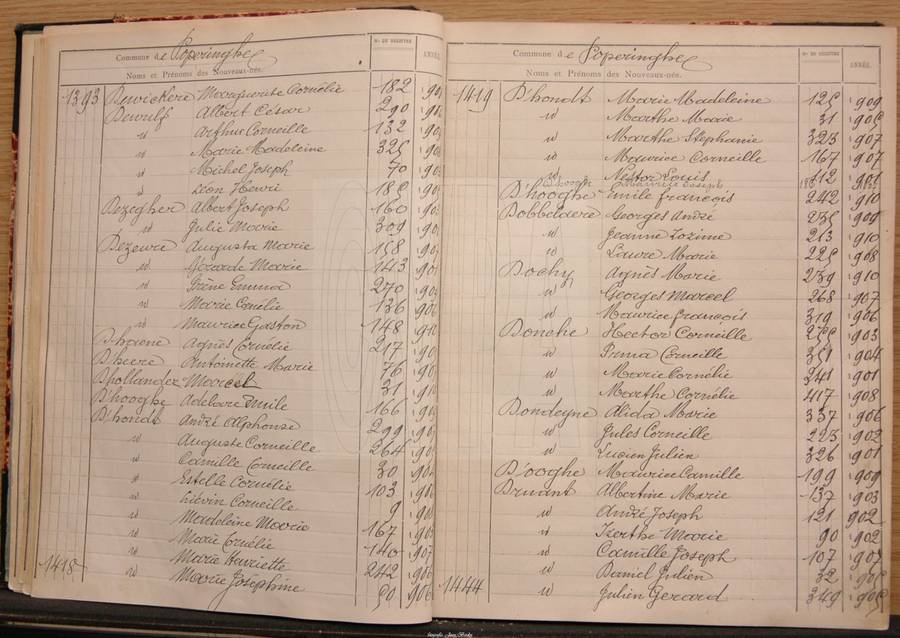 Commune de Poperinghe
Nos DU REGISTRE
ANNÉE
Noms et Prénoms des Nouveaux-nés.
1393 Dewickere Marguerite Cornélie 182
Dewulf Albert César 290
id Arthur Corneille 132
id Marie Madeleine 325
id Michel Joseph 70
id Léon Henri
Dezegher Albert Joseph 160
id Julie Marie 309
Dezeure Augusta Marie 158
id Gérarde Marie 143
id Irène Emma 270
id Marie Cornélie 136
id Maurice Gaston 148
D'haene Agnès Cornélie 217
D'heere Antoinette Marie 76
Dhollander Marcel 31
D'hooghe Adelaire Emile 166
D'hondt André Alphonse 299
id Auguste Corneille 264
id Camille Corneille 30
id Estelle Cornélie 103
id Liévin Corneille 9
id Madeleine Marie
id Marie Cornélie 167
id Marie Henriette 140 907
1418 id Marie Joséphine 242 906
50 906
Commune de Poperinghe
Nos DU REGISTRE
ANNÉE.
Noms et Prénoms des Nouveaux-nés.
1419 D'hondt Marie Madeleine 125 909
id Marthe Marie 31
id Marthe Stephanie 323 907
id Maurice Corneille 167 907
id Nestor Louis 112 901
D'hooghe Emile François 242 910
Dobbelaere Georges André 235 909
id Jeanne Zozime 213 910
id Laure Marie 225 908
Dochy Agnès Marie 239 910
id Georges Marcel 268 907
id Maurice François 319 906
Donche Hector Corneille 903
id Irma Corneille 351 904
id Marie Cornélie 241 901
id Marthe Cornélie 417 908
Dondeyne Alida Marie 337 906
id Jules Corneille 223 902
id Lucien Julien 326 901
D'ooghe Maurice Camille 199 909
Druant Albertine Marie 137 903
id André Joseph 121 902
id Berthe Marie 90 902
id Camille Joseph 107 907
id Daniel Julien 32
1444 id Julien Gerard 349